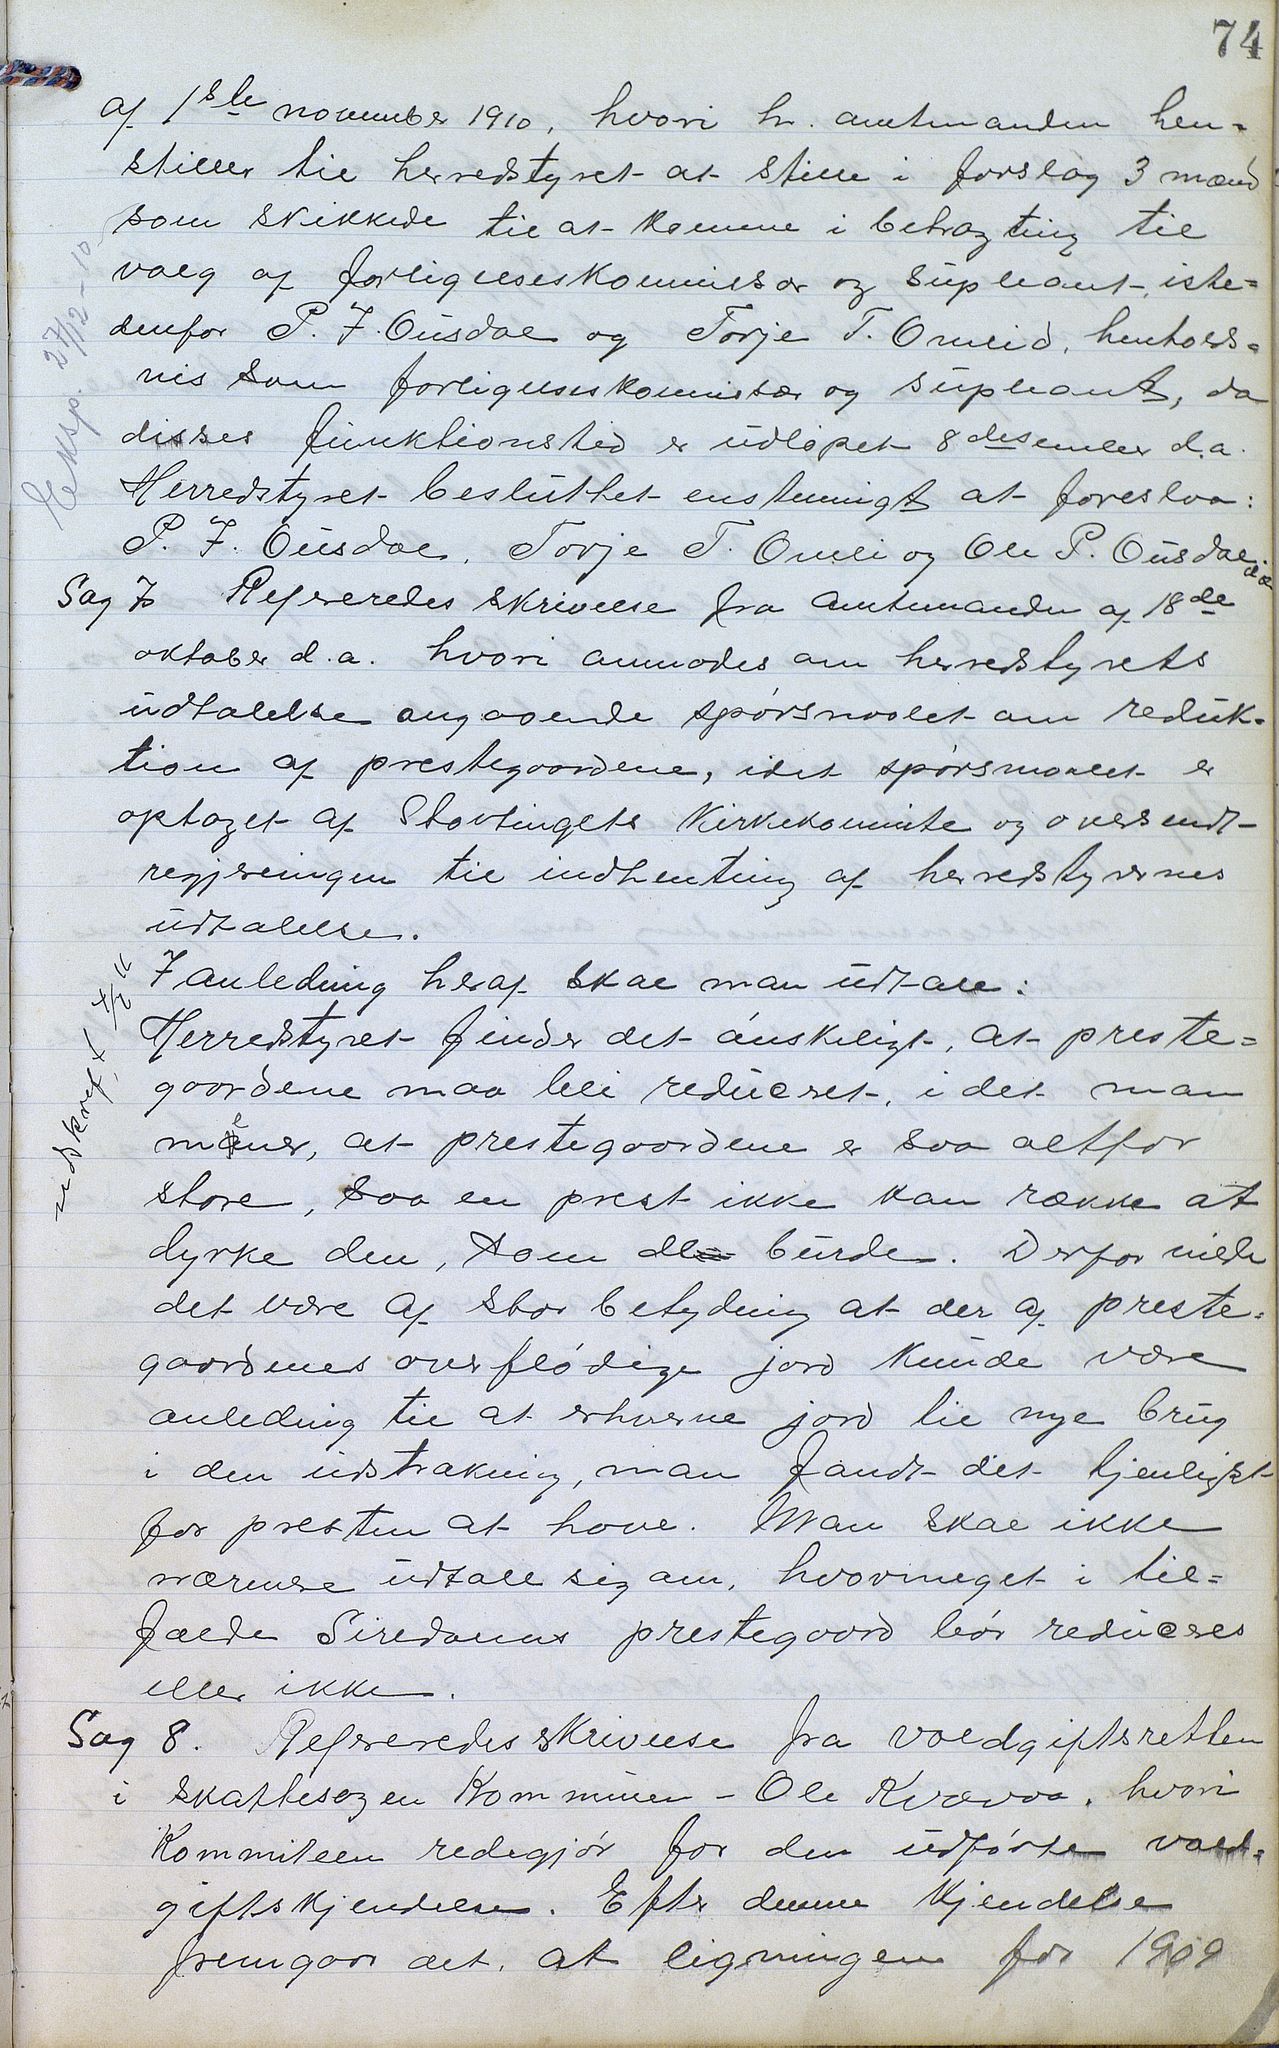 74
af 1ste november 1910, hvori hr. amtmanden hen-
stiller til herredstyret at stille i forslag 3 mænd
som skikkede til at komme i betragting til
valg af forligelseskommissær og supleant, iste-
denfor P. J. Ousdal og Torje T. Omlid, henholds-
vis som forligelseskommissær og supleant, da
disses funktionstid er udløpet 8 desember d.a.
Herredstyret besluttet enstemmigt at foreslaa:
P. J. Ousdal, Torje T. Omli og Ole P. Ousdal
Eksp. 27/12-10
Sag 7. Refereredes skrivelse fra amtmanden af 18de
oktober d.a. hvori anmodes om herredstyrets
udtalelse angaaende spørsmaalet om reduk-
tion af prestegaardene, idet spørsmaalet er
optaget af Stortingets Kirkekomite og oversendt
regjeringen til indhenting af herredstyrernes
udtalelse.
I anledning heraf skal man udtale:
Herredstyret finder det ønskeligt, at preste-
gaardene maa bli reduceret, i det man
mener, at prestegaardene er saa altfor
store, saa en prest ikke kan række at
dyrke den, som de burde. Derfor vilde
det være af stor betydning at der af preste-
gaardenes overflødige jord kunde være
anledning til at erhverve jord til nye brug
i den udstrækning, man fandt det tjenligst
for presten at have. Man skal ikke
nærmere udtale sig om, hvormeget i til-
fælde Siredanns prestegaard bør reduceres
eller ikke.
udskref. 4/2 11
Sag 8. Refereredes skrivelse fra voldgiftsretten
i skattesagen Kommunen - Ole Kvævaa, hvori
Kommiteen redegjør for den udførte vold-
giftskjendelse. Efter denne Kjendelse
fremgaar det, at ligningen for 1909